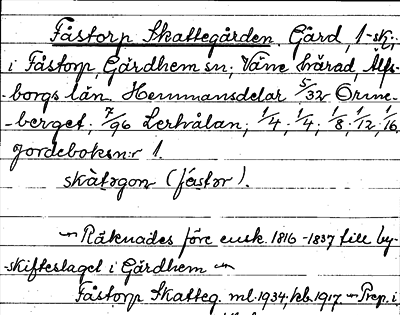 Fåstorp Skattegården. Gård, 1-skj;
i Fåstorp, Gärdhem sn; Väne härad, Älfs-
borgs län. Hemmansdelar 5/32 Orme-
-berget; 7/96 Lerhålan; 1/4; 1/4; 1/8; 1/12; 1/16
Jordeboksn:r 1.
skàtəgọn (fástor).
~ Räknades före ensk. 1816-1837 till by-
-skifteslaget i Gärdhem ~
Fåstorp Skatteg. ml. 1934, kb. 1917. ~ Prep. i